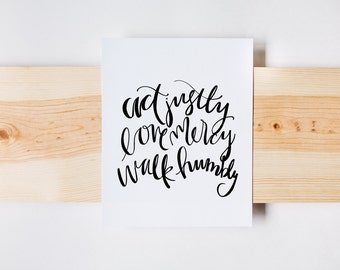 act justly
love mercy
walk humbly